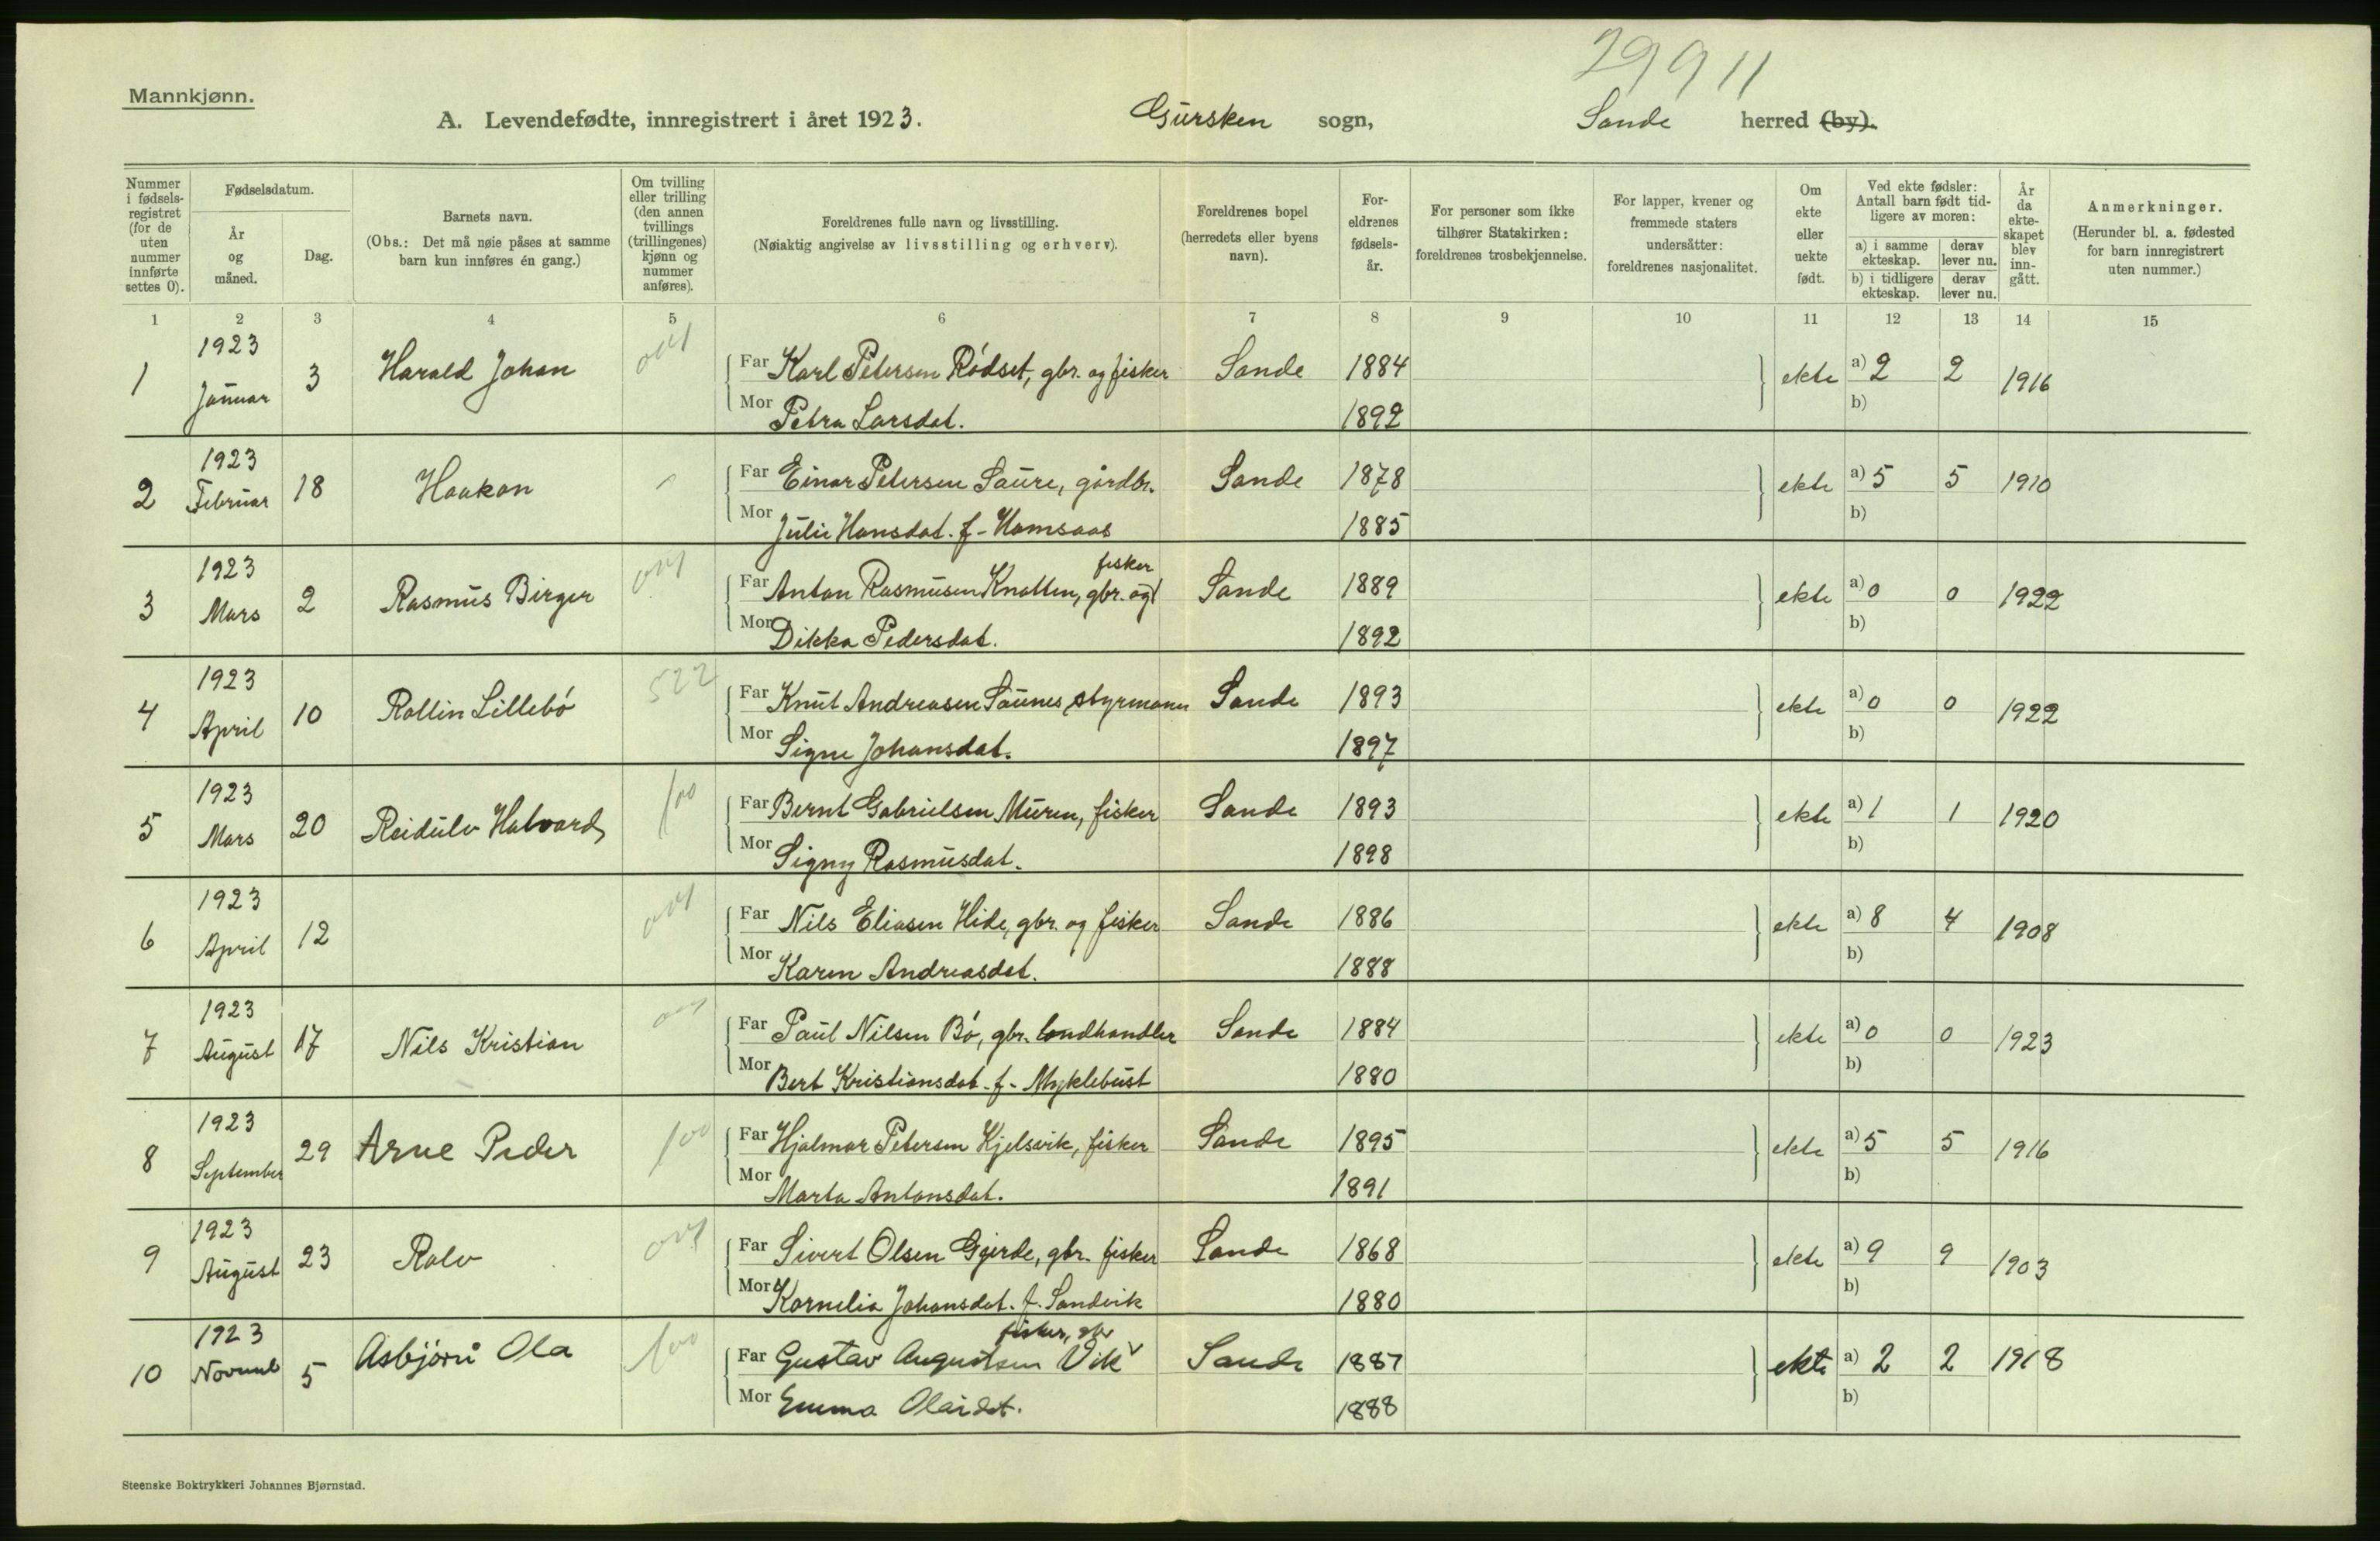 29911
Mannkjønn.
A. Levendefødte, innregistrert i året 1923. Gursken sogn, Sande herred (by).
Nummer i fødsels-registret (for de uten nummer innførte settes 0). Fødselsdatum. År og måned. Dag. Barnets navn. (Obs.: Det må nøie påses at samme barn kun innføres én gang.) Om tvilling eller trilling (den annen tvillings (trillingenes) kjønn og nummer anføres). Foreldrenes fulle navn og livsstilling. (Nøiaktig angivelse av livsstilling og erhverv). Foreldrenes bopel (herredets eller byens navn). For-eldrenes fødsels-år. For personer som ikke tilhører Statskirken: foreldrenes trosbekjennelse. For lapper, kvener og fremmede staters undersåtter: foreldrenes nasjonalitet. Om ekte eller uekte født. Ved ekte fødsler: Antall barn født tid-ligere av moren: a) i samme ekteskap. derav lever nu. b) i tidligere ekteskap. derav lever nu. År da ekte-skapet blev inn-gått. Anmerkninger. (Herunder bl. a. fødested for barn innregistrert uten nummer.)
1 2 3 4 5 6 7 8 9 10 11 12 13 14 15
1 1923 Januar 3 Harald Johan Far Karl Petersen Rödset, gbr. og fisker Sande 1884 ekte a) 2 2 1916
Mor Petra Larsdat. 1892 b)
2 1923 Februar 18 Haakon Far Einar Petersen Saure, gårdbr. Sande 1878 ekte a) 5 5 1910
Mor Julie Hansdat. f. Hamsaas 1885 b)
fisker
3 1923 Mars 2 Rasmus Birger Far Anton Rasmusen Knotten, gbr. og Sande 1889 ekte a) 0 0 1922
Mor Dikka Pedersdat. 1892 b)
4 1923 April 10 Rollin Lillebö 522 Far Knut Andreasen Saunes, styrmann Sande 1893 ekte a) 0 0 1922
Mor Signe Johansdat. 1897 b)
5 1923 Mars 20 Reidulv Halvard 100 Far Bernt Gabrielsen Muren, fisker Sande 1893 ekte a) 1 1 1920
Mor Signy Rasmusdat. 1898 b)
6 1923 April 12 Far Nils Eliasen Hide, gbr. og fisker Sande 1886 ekte a) 8 4 1908
Mor Karen Andreasdat. 1888 b)
7 1923 August 17 Nils Kristian Far Paul Nilsen Bö, gbr. landhandler Sande 1884 ekte a) 0 0 1923
Mor Bert Kristiansdat. f. Myklebust 1880 b)
8 1923 September 29 Arne Peder 100 Far Hjalmar Petersen Kjelsvik, fisker Sande 1895 ekte a) 5 5 1916
Mor Marta Antonsdat. 1891 b)
9 1923 August 23 Ralv Far Sivert Olsen Gjerde, gbr. fisker Sande 1868 ekte a) 9 9 1903
Mor Kornelia Johansdat. f. Sandvik 1880 b)
fisker,
10 1923 Novemb 5 Asbjörn Ola 100 Far Gustav Augustsen Vik Sande 1887 ekte a) 2 2 1918
Mor Emma Olaisdt. 1888 b)
Steenske Boktrykkeri Johannes Bjørnstad.